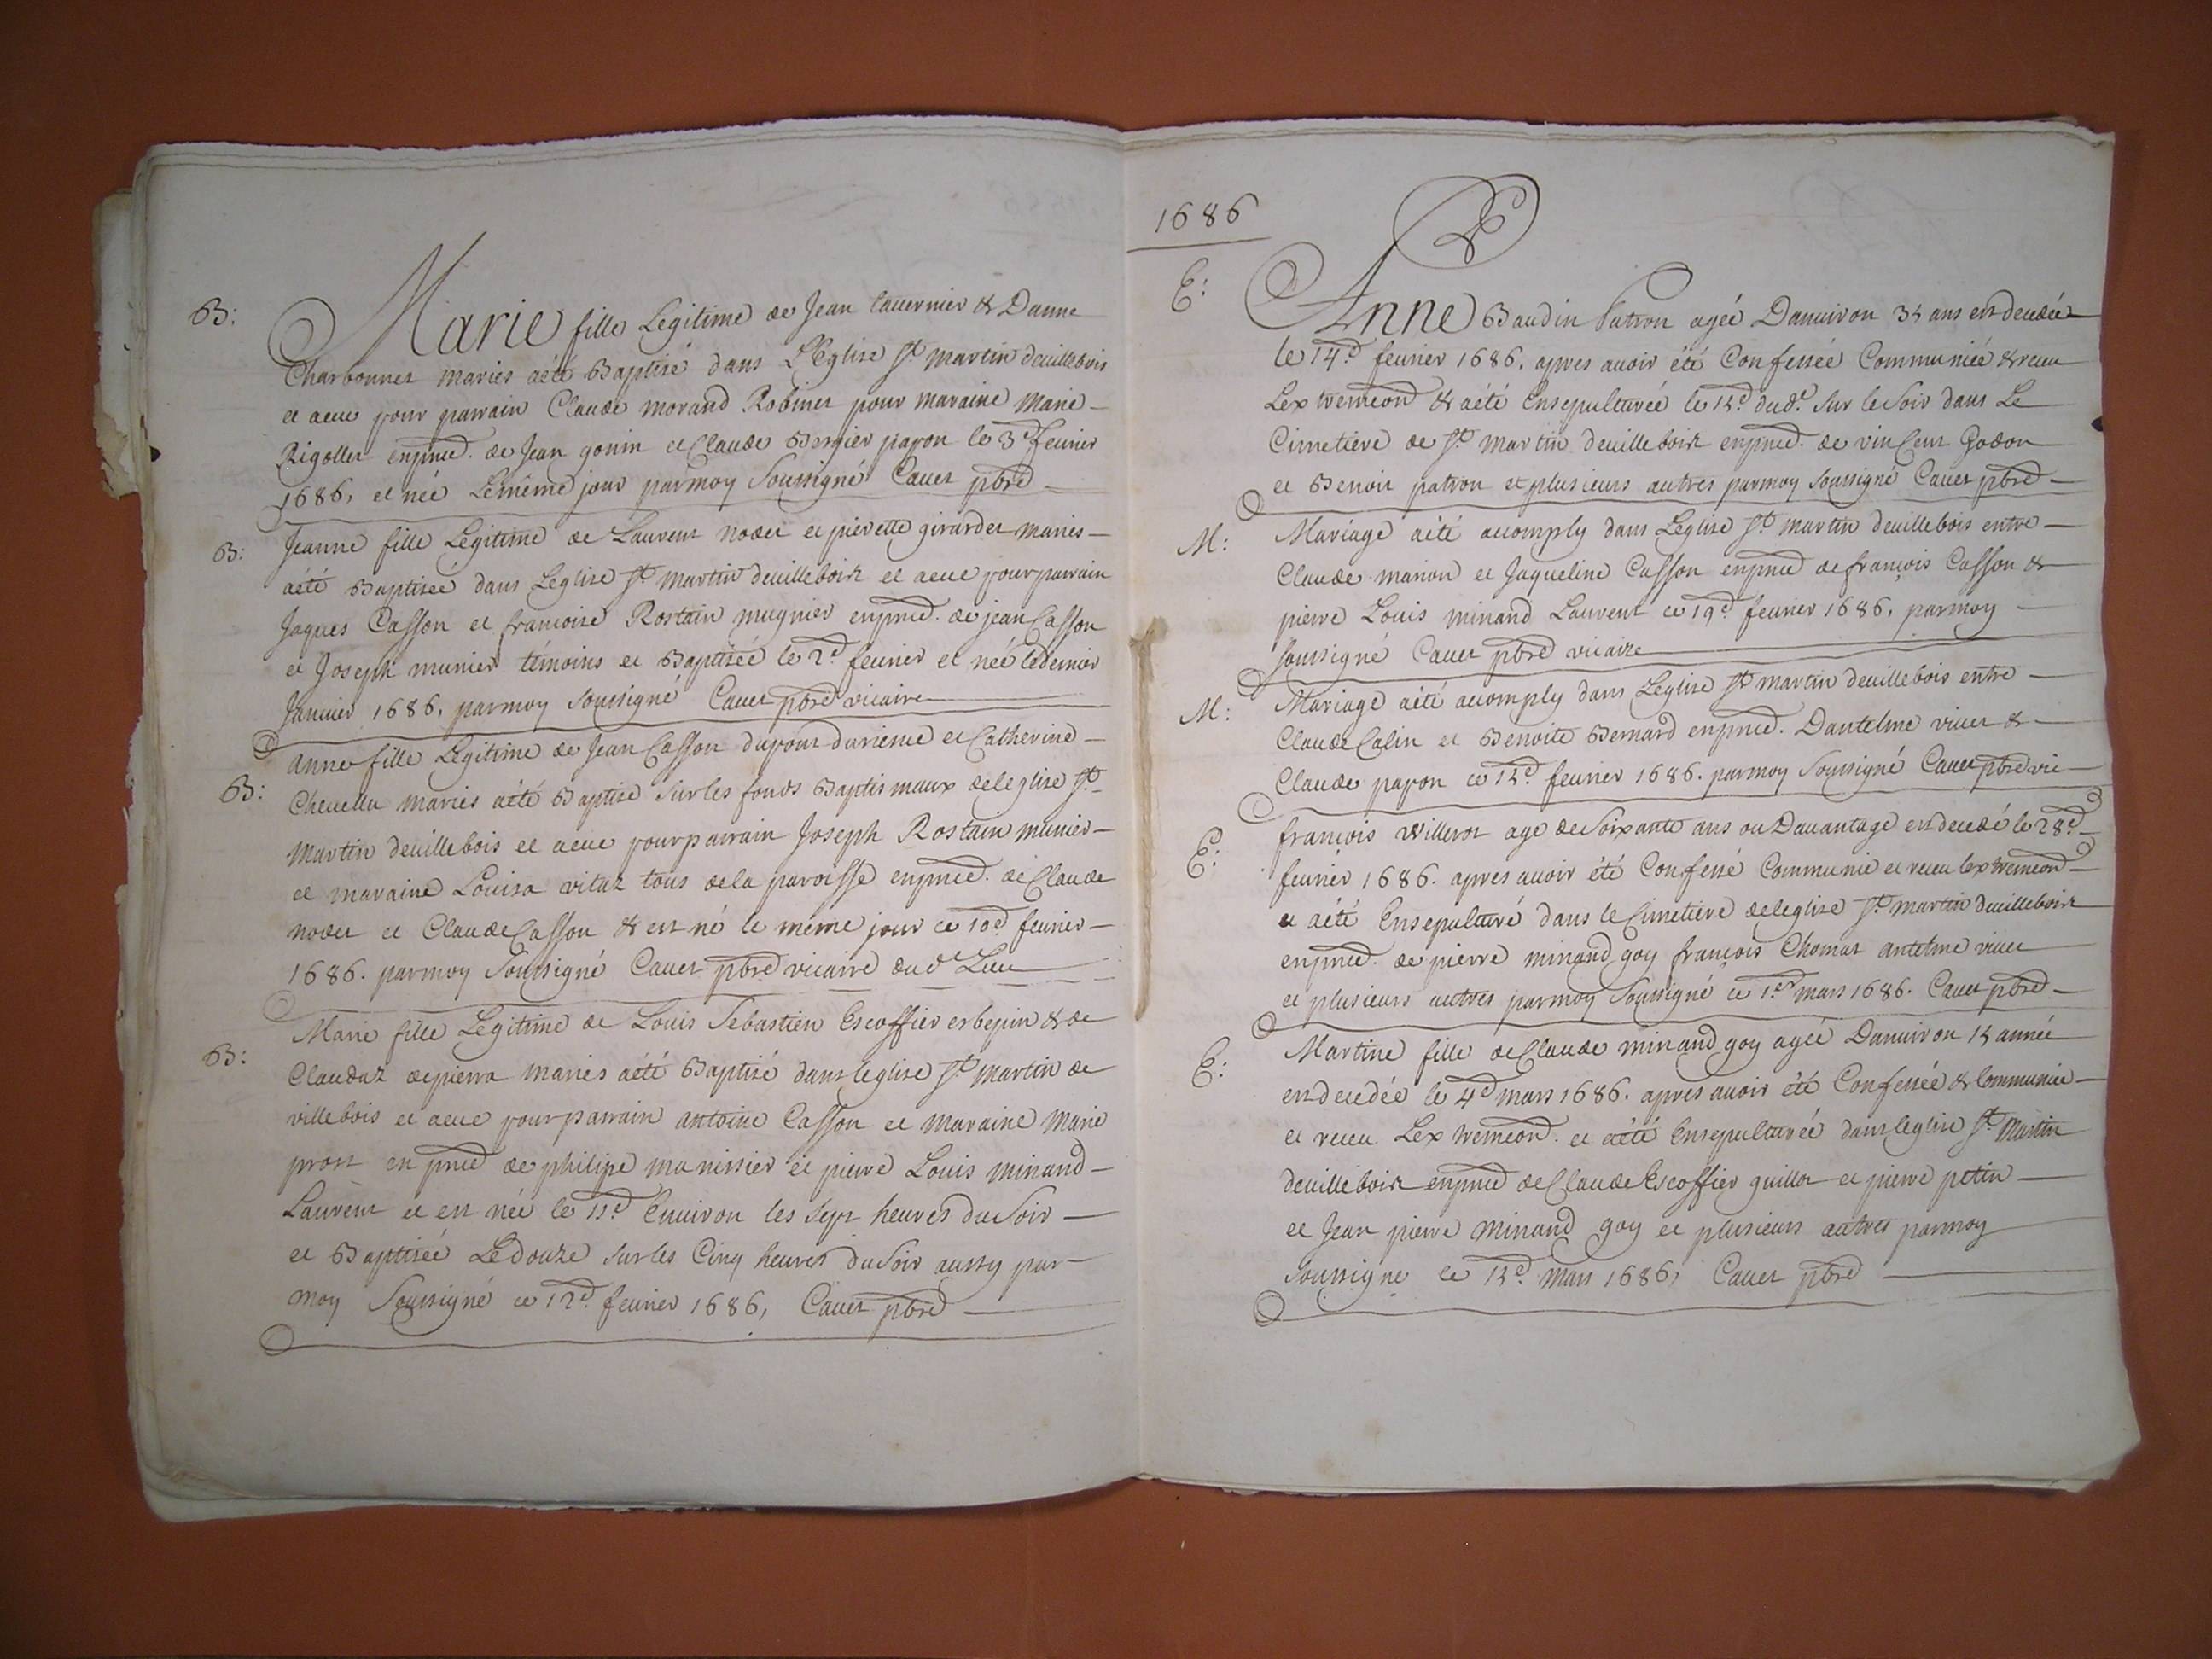 B: Marie fille Legitime de Jean tavernier & Danne
Charbonnet mariés aété Baptisé dans L'Eglise St. martin deuillebois
et aeue pour parrain Claude morand Robinet pour maraine marie —
Rigollet enpnce. de Jean gonin et Claude Bernier papon le 3e feurier
1686, et née Lemême jour parmoy Soussigné Cauet pbre —
B: Jeanne fille Légitime de Laurent nodet et pierette girardet mariés —
aété Baptisée dans Leglise St. martin deuillebois et aeue pourparrain
Jaques Casson et francoise Rostain mugnier enpnce. de jean Casson
et Joseph munier témoins et Baptisée le 2d feurier et née ledernier
Januier 1686, parmoy soussigné Cauet pbre vicaire
B: anne fille Légitime de Jean Casson dupont et Catherine —
Cheuellu mariés aété Baptisé Surles fonds Baptismaux deleglise St.
Martin deuillebois et aeue pourparrain Joseph Rostain munier —
et maraine Louisa vitaz tous dela paroisse enpnce. de Claude
nodet et Claude Casson & est né le même jour ce 10d feurier —
1686. parmoy Soussigné Cauet pbre vicaire dud. Lieu
B: Marie fille Légitime de Louis Sebastien Escoffier erbepin & de
Claudaz depierra mariés aété Baptisé dans leglise St. martin de
villebois et aeue pourparrain antoine Casson et maraine marie
prost en pnce de philipe manissier et pierre Louis minand —
Laurent et est née le 11d. Enuiron les Sept heures duSoir —
et Baptisée Ledouze Surles Cinq heures duSoir aussy par —
moy Soussigné ce 12d. feurier 1686, Cauet pbre —
1686
E: Anne Baudin Patron agée Danuiron 35 ans est decedée
le 14d. feurier 1686. apres auoir été Confessée Communiée & receu
Lextremeond & aété Ensepulturée le 15d. dud. Sur leSoir dans Le
Cimetiere de St. martin deuillebois enpnce. de vinCent Godon
et Benoit patron et plusieurs autres parmoy soussigné Cauet pbre —
M: Mariage aété acomply dans Leglise St. martin deuillebois entre —
Claude marion et Jaqueline Casson enpnce de françois Casson &
pierre Louis minand Laurent ce 19d. feurier 1686, parmoy —
soussigné Cauet pbre vicaire
M: Mariage aété acomply dans Leglise St. martin deuillebois entre —
Claude Calin et Benoite Bernard enpnce. Dantelme viuet & —
Claude papon ce 15d. feurier 1686. parmoy Soussigné Cauet pbre vic —
E: françois Willerot age deSoixante ans ou Dauantage est decedé le 28d. —
feurier 1686. apres auoir été Confessé Communié et receu lextremeond —
et aété Ensepulturé dans le Cimetiere deleglise St. martin deuillebois
enpnce. de pierre minand goy françois Chomat antelme viuet
et plusieurs autres parmoy Soussigné ce 1er mars 1686. Cauet pbre —
E: Martine fille de Claude minand goy agée Danuiron 15 année
est decedée le 4d mars 1686. apres auoir été Confessée & Communiée —
et receu Lextremeond. et aété Ensepulturée dans leglise St. Martin
deuillebois enpnce de Claude Escoffier guillot et pierre petin —
et Jean pierre Minand goy et plusieurs autres parmoy
soussigne ce 15d. mars 1686, Cauet pbre